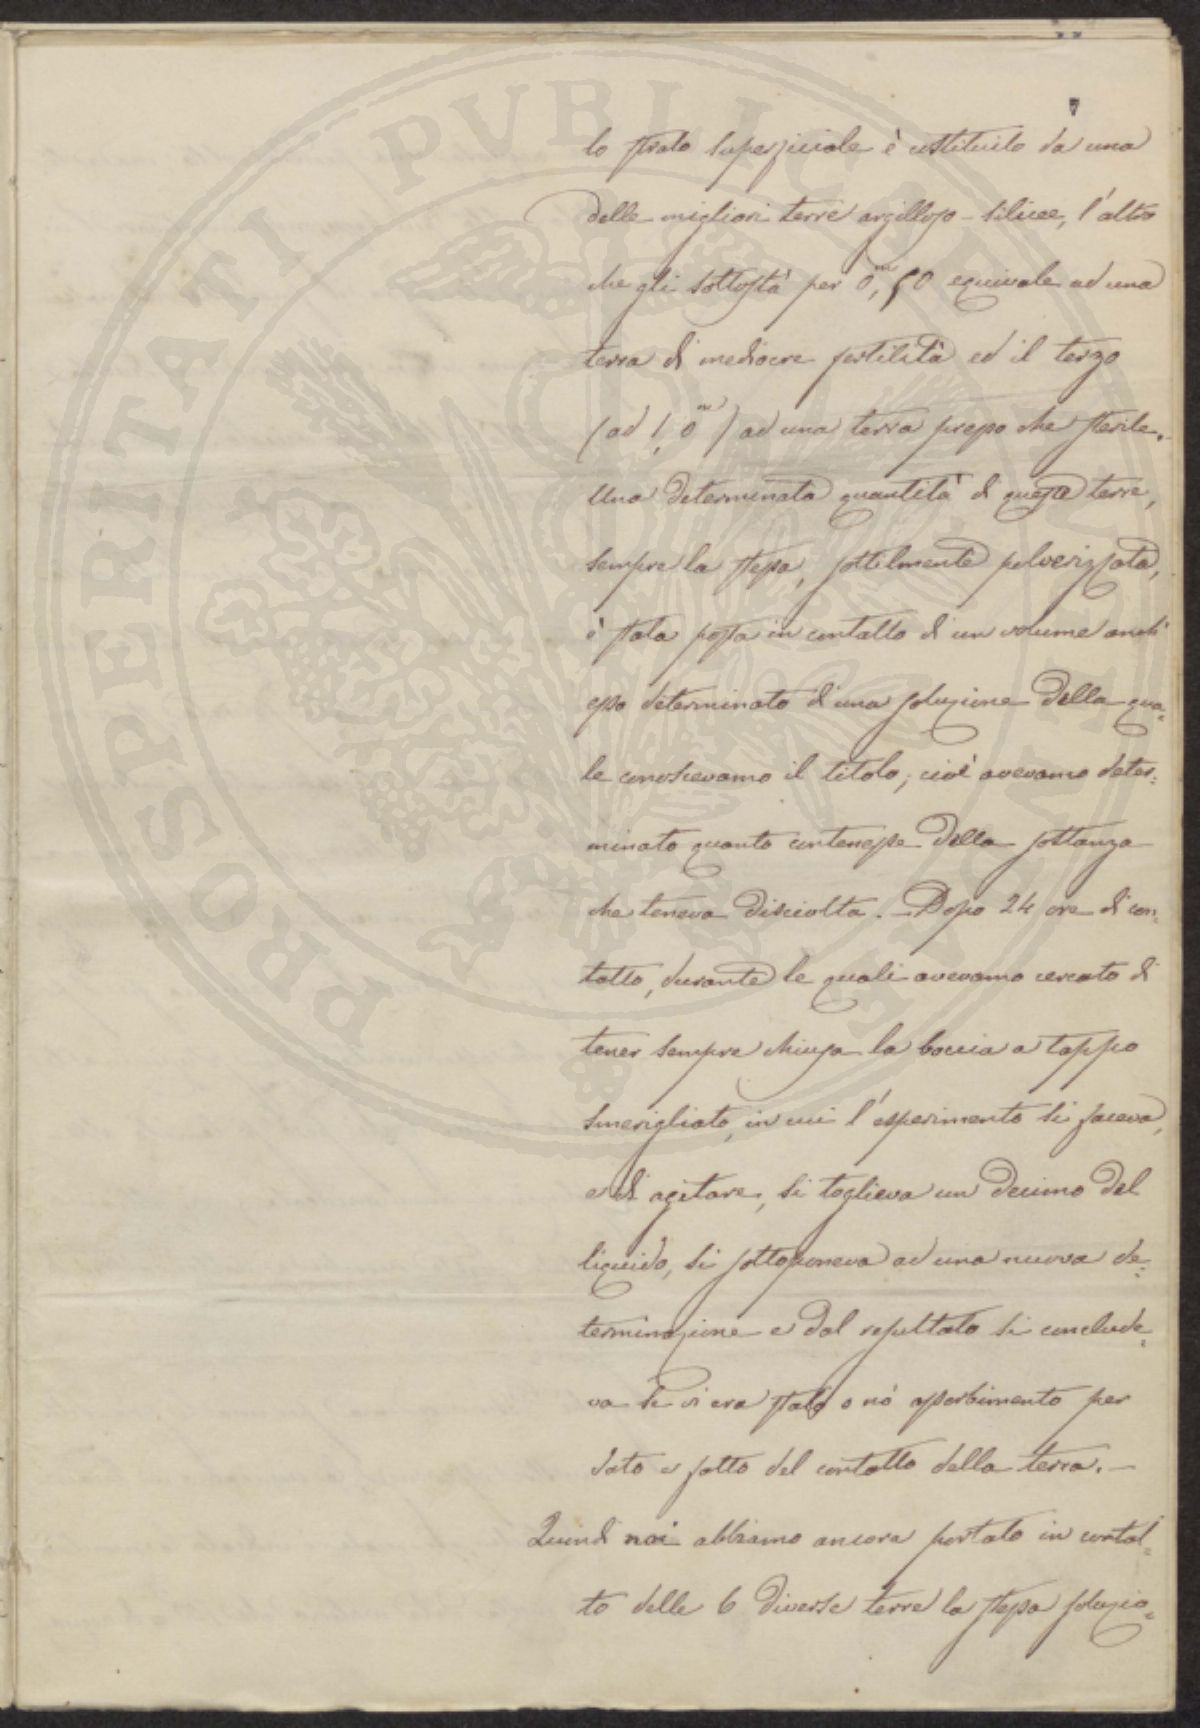 lo strato superficiale è costituito da una
delle migliori terre argilloso-silicee, l'altro
che gli sottostà per 0,m50 equivale ad una
terra di mediocre fertilità ed il terzo
(ad 1,0m) ad una terra presso che sterile.
Una determinata quantità di queste terre,
sempre la stessa, sottilmente polverizzata,
è stata posta in contatto di un volume anch'
esso determinato d'una soluzione della qua=
le conoscevamo il titolo, cioè avevamo deter=
minato quanto contenesse della sostanza
che teneva disciolta. — Dopo 24 ore di con=
tatto, durante le quali avevamo cercato di
tener sempre chiusa la boccia a tappo
smerigliato, in cui l'esperimento si faceva,
e di agitare, si toglieva un decimo del
liquido, si sottoponeva ad una nuova de=
terminazione e dal resultato si conclude=
va se vi era stato o nò assorbimento per
dato e fatto del contatto della terra. —
Quindi noi abbiamo ancora portato in contat=
to delle 6 diverse terre la stessa soluzio=
PROSPERITATI PVBLICAE